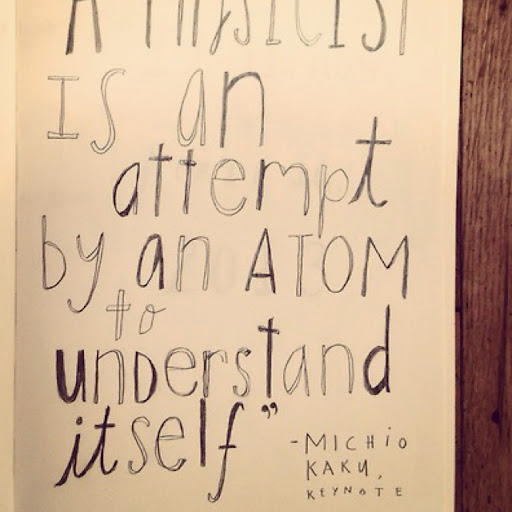 A PHYSICIST
IS an
attempt
by an ATOM
to
understand
itself”
-MICHIO
KAKU,
KEYNOTE